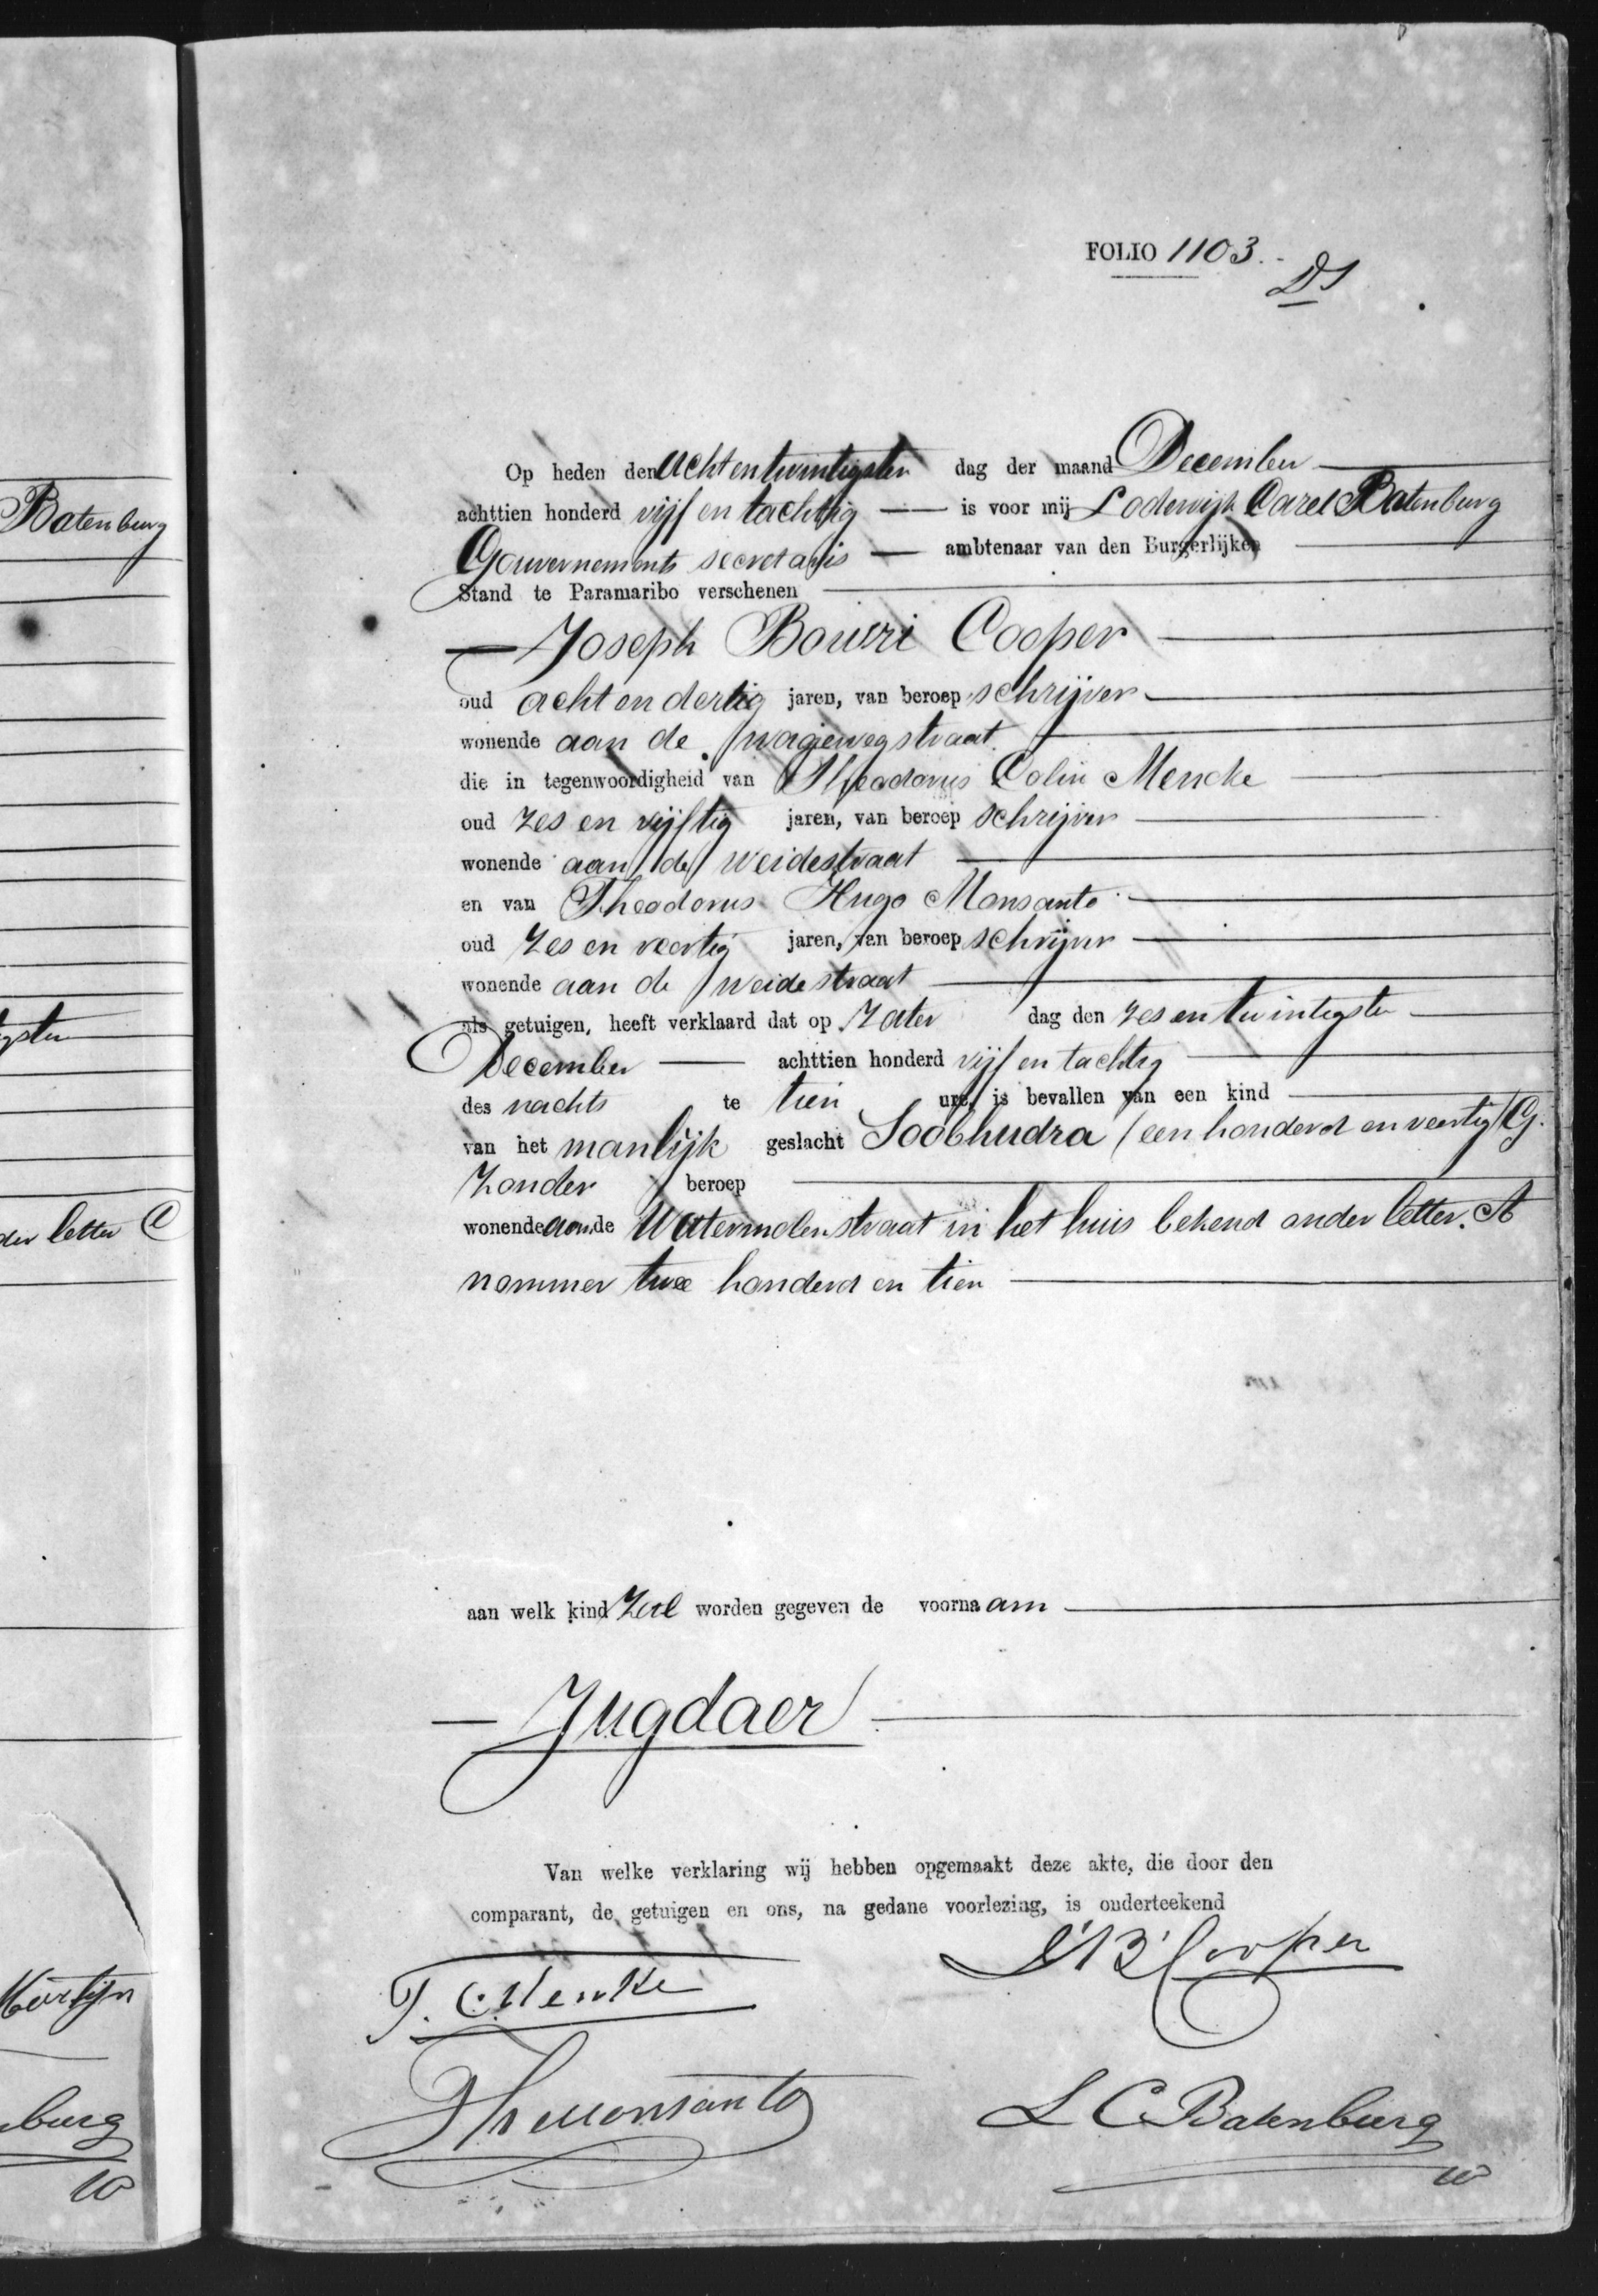 Batenburg
gsten
der letter C
Mertijn
burg
FOLIO 1103.
DS
Op heden den Acht en twintigsten dag der maand December
achttien honderd vijf en tachtig is voor mij Lodewijk Carel Batenburg
Gouvernements secretaris ambtenaar van den Burgerlijken
Stand te Paramaribo verschenen
Joseph Bouvri Cooper
oud acht en dertig jaren, van beroep schrijver
wonende aan de wagewegstraat
die in tegenwoordigheid van Theodorus Colin Mencke
oud zes en vijftig jaren, van beroep schrijver
wonende aan de weidestraat
en van Theodorus Hugo Monsanto
oud zes en veertig jaren, van beroep schrijver
wonende aan de weidestraat
als getuigen, heeft verklaard dat op Zater dag den zes en twintigste
December achttien honderd vijf en tachtig
des nachts te tien ure, is bevallen van een kind
van het manlijk geslacht Soobhudra (een honderd en veertig/G.
Zonder beroep
wonende aan de Watermolenstraat in het huis bekend onder letter A
nommer twee honderd en tien
aan welk kind Zal worden gegeven de voornaam
Jugdaer
Van welke verklaring wij hebben opgemaakt deze akte, die door den
comparant, de getuigen en ons, na gedane voorlezing, is onderteekend
J B Cooper
T. C. Menke
Th Monsanto
L C Batenburg